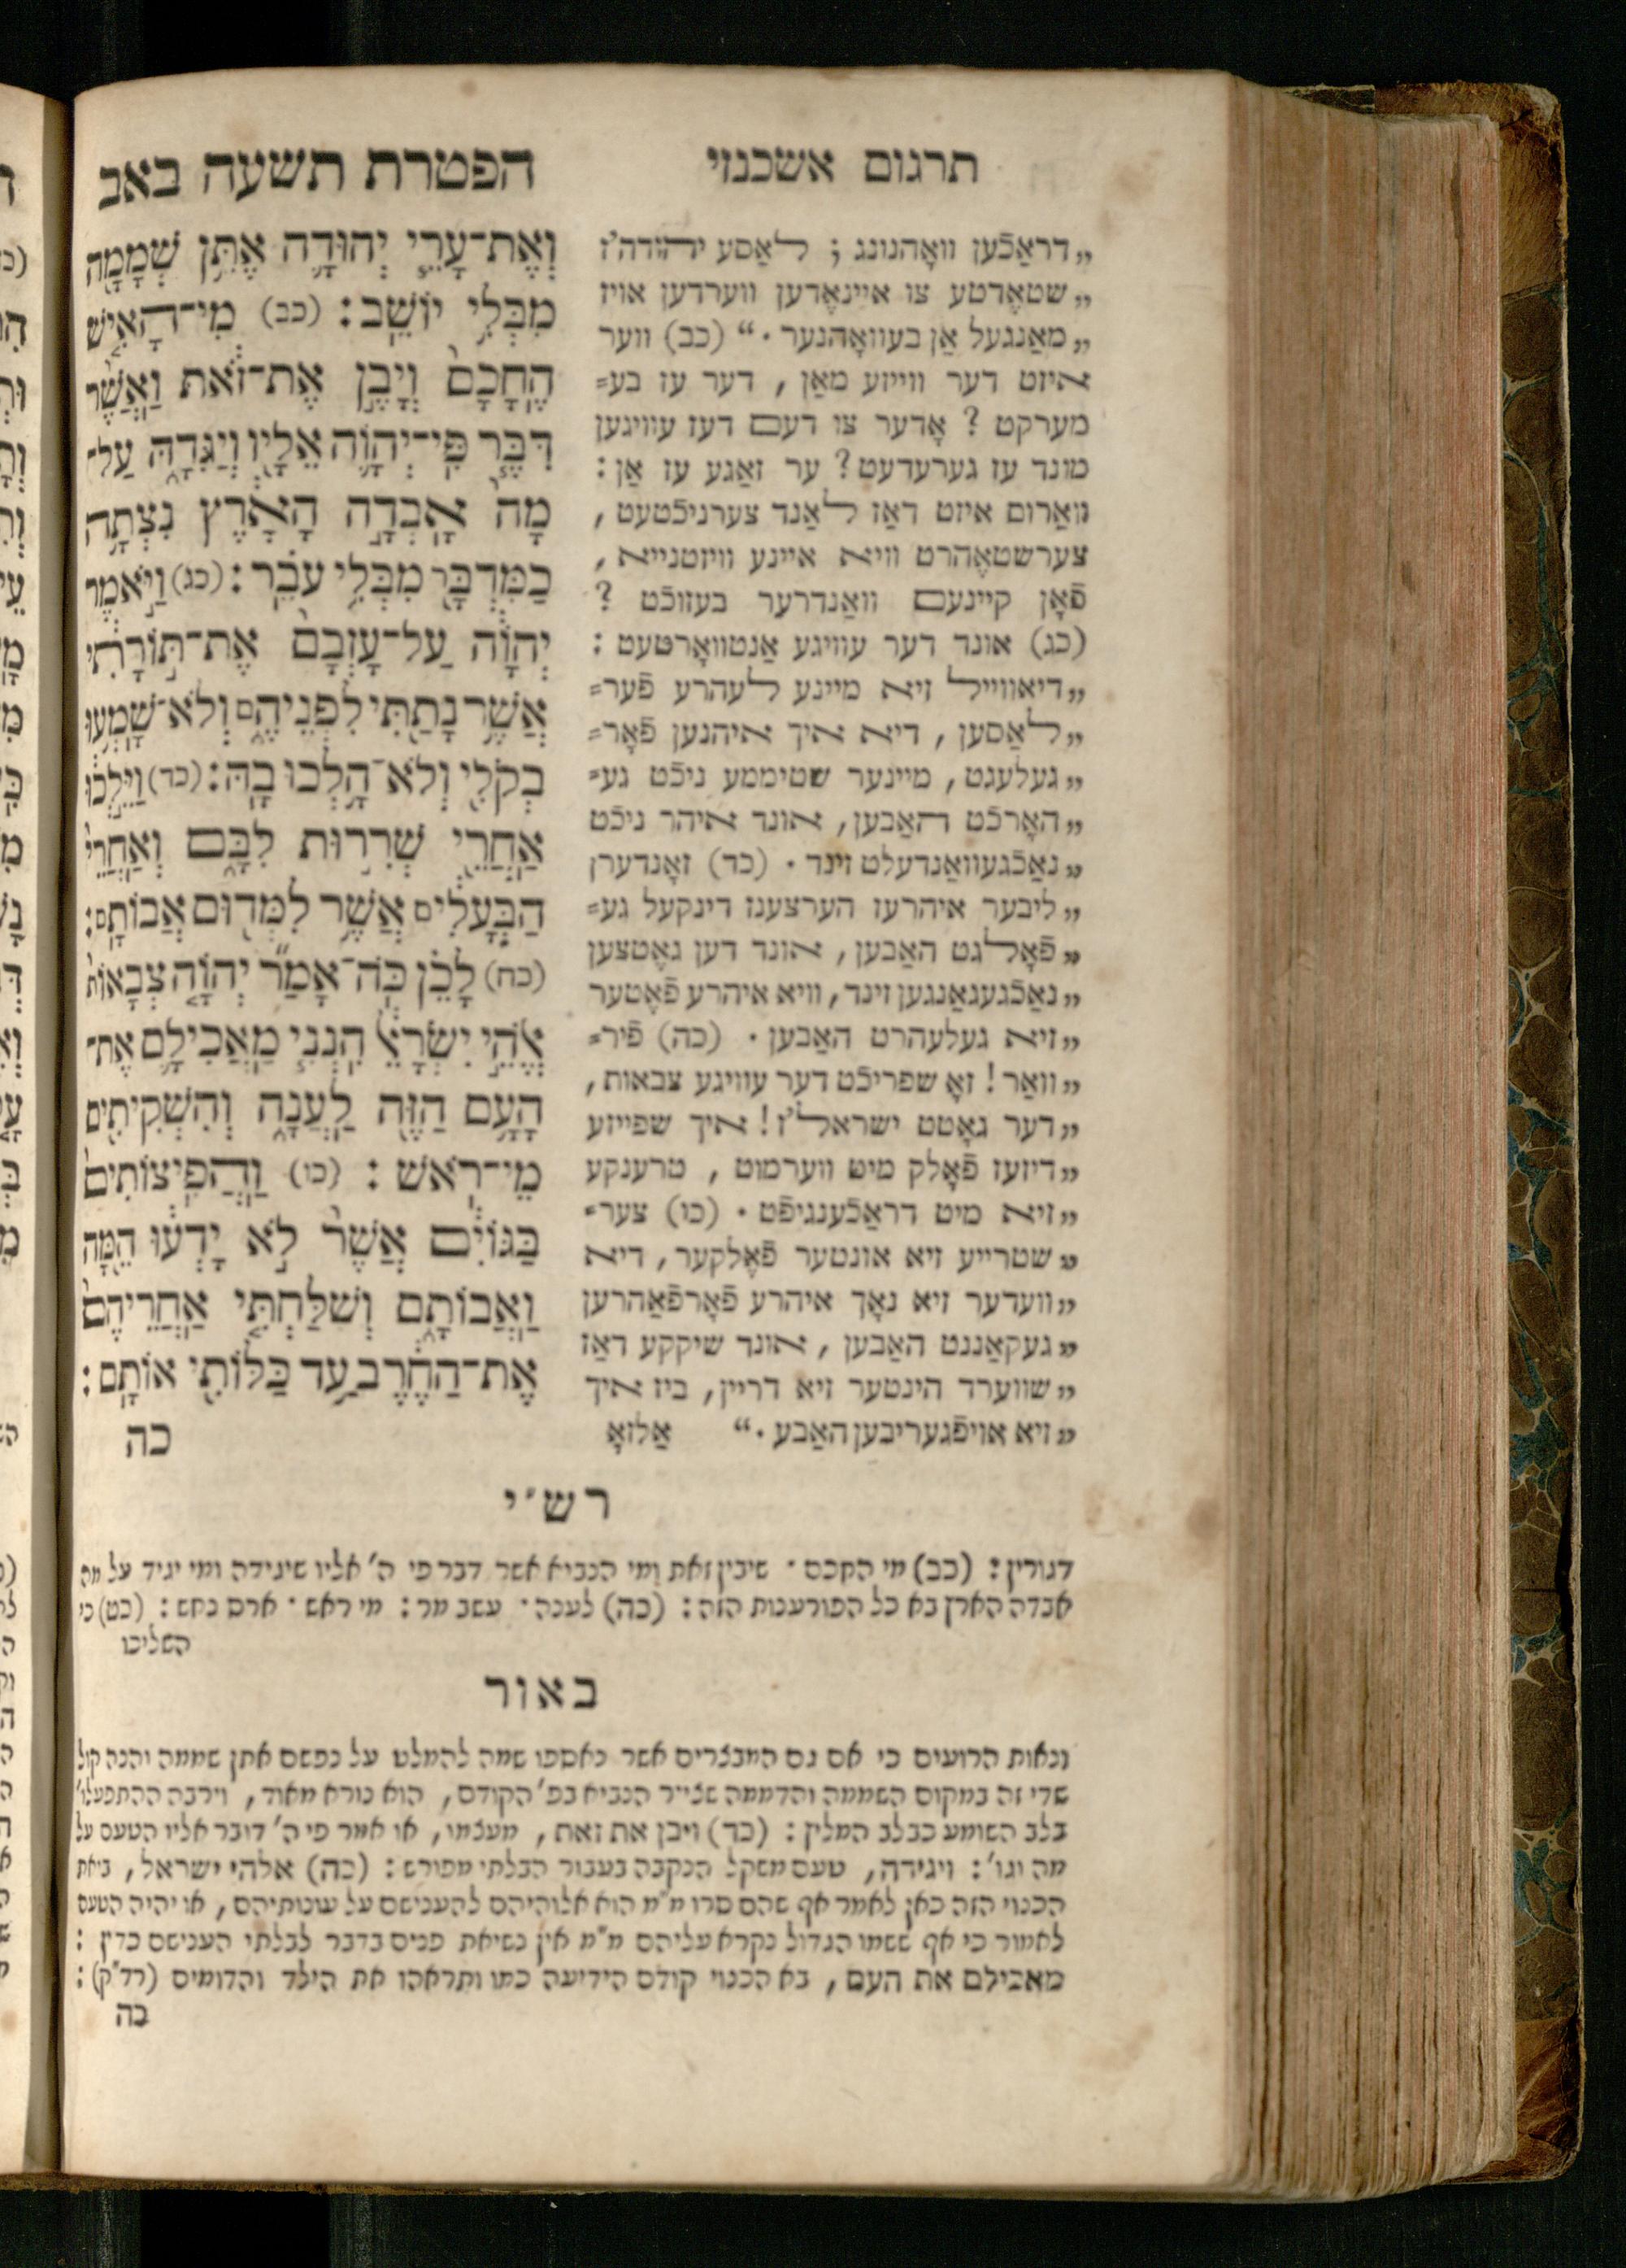 תרגום אשכנזי
הפטרת תשעה באב
„דראַכֿען וואָהנונג ; לאַסע יהודה'ז
„שטאֶדטע צו איינאֶדען ווערדען אויז
„מאַנגעל אַן בעוואָהנער ·“ (כב) ווער
איזט דער ווייזע מאַן , דער עז בע=
מערקט ? אָדער צו דעם דעז עוויגען
מונד עז גערעדעט ? ער זאַגע עז אַן :
וואַרום איזט דאַז לאַנד צערניכֿטעט ,
צערשטאֶהרט וויא איינע וויזטנייא ,
פֿאָן קיינעם וואַנדרער בעזוכֿט ?
(כג) אונד דער עוויגע אַנטוואָרטעט :
„דיאווייל זיא מיינע לעהרע פֿער=
„לאַסען , דיא איך איהנען פֿאָר=
„געלעגט, מיינער שטיממע ניכֿט גע=
„האָרכֿט האַבען, אונד איהר ניכֿט
„נאַכֿגעוואַנדעלט זינד · (כד) זאָנדערן
„ליבער איהרעז הערצענז דינקעל גע=
„פֿאָלגט האַבען, אונד דען גאֶטצען
„נאַכֿגעגאַנגען זינד, וויא איהרע פֿאֶטער
„זיא געלעהרט האַבען · (כה) פֿיר=
„וואַר ! זאָ שפריכֿט דער עוויגע צבאות,
„דער גאָטט ישראל'ז ! איך שפייזע
„דיזעז פֿאָלק מיט ווערמוט , טרענקע
„זיא מיט דראַכֿענגיפֿט · (כו) צער=
„שטרייע זיא אונטער פֿאֶלקער, דיא
„וועדער זיא נאָך איהרע פֿאָרפֿאַהרען
„געקאַננט האַבען , אונד שיקקע דאַז
„שווערד הינטער זיא דריין, ביז איך
„זיא אויפֿגעריבען האַבע ·“ אַלזאָ
וְאֶת־עָרֵי יְהוּדָה אֶתֵּן שְׁמָמָה
מִבְּלִי יוֹשֵׁב : (כב) מִי־הָאִישׁ
הֶחָכָם וְיָבֵן אֶת־זֹאת וַאֲשֶׁר
דִּבֶּר פִּי־יְהוָֹה אֵלָיו וְיַגִּדָהּ עַל־
מָה אָבְדָה הָאָרֶץ נִצְּתָה
כַמִּדְבָּר מִבְּלִי עֹבֵר : (כג) וַיֹּאמֶר
יְהוָֹה עַל־עָזְבָם אֶת־תּוֹרָתִי
אֲשֶׁר נָתַתִּי לִפְנֵיהֶם וְלֹא־שָׁמְעוּ
בְקֹלִי וְלֹא־הָלְכוּ בָהּ : (כד) וַיֵּלְכוּ
אַחֲרֵי שְׁרִרוּת לִבָּם וְאַחֲרֵי
הַבְּעָלִים אֲשֶׁר לִמְּדוּם אֲבוֹתָם :
(כה) לָכֵן כֹּה־אָמַר יְהוָֹה צְבָאוֹת
אֱלֹהֵי יִשְׂרָאֵל הִנְנִי מַאֲכִילָם אֶת־
הָעָם הַזֶּה לַעֲנָה וְהִשְׁקִיתִים
מֵי־רֹאשׁ : (כו) וַהֲפִיצוֹתִים
בַּגּוֹיִם אֲשֶׁר לֹא יָדְעוּ הֵמָּה
וַאֲבוֹתָם וְשִׁלַּחְתִּי אַחֲרֵיהֶם
אֶת־הַחֶרֶב עַד כַּלּוֹתִי אוֹתָם :
כה
רש״י
דגורין : (כב) מי החכם · שיבין זאת ומי הנביא אשר דבר פי ה' אליו שיגידה ומי יגיד על מה
אבדה הארץ בא כל הפורענות הזה : (כה) לענה · עשב מר : מי ראש · ארס נחש : (כט) כי
השליכו
באור
ונאות הרועים כי אם גם המבצרים אשר נאספו שמה להמלט על נפשם אתן שממה והנה קול
שדי זה במקום השממה והדממה שצייר הנביא בפ' הקודם, הוא נורא מאוד, וירבה ההתפעלו'
בלב השומע כבלב המליץ : (כד) ויבן את זאת, מעצמו, או אמר פי ה' דובר אליו הטעם על
מה וגו' : ויגידה, טעם משקל הנקבה בעבור הבלתי מפורש : (כה) אלהי ישראל, ביאת
הכנוי הזה כאן לאמר אף שהם סרו מ״מ הוא אלוהיהם להענישם על עונותיהם, או יהיה הטעם
לאמור כי אף ששמו הגדול נקרא עליהם מ״מ אין נשיאת פנים בדבר לבלתי הענישם כדין :
מאכילם את העם, בא הכנוי קודם הידיעה כמו ותראהו את הילד והדומים (רד״ק) :
כה